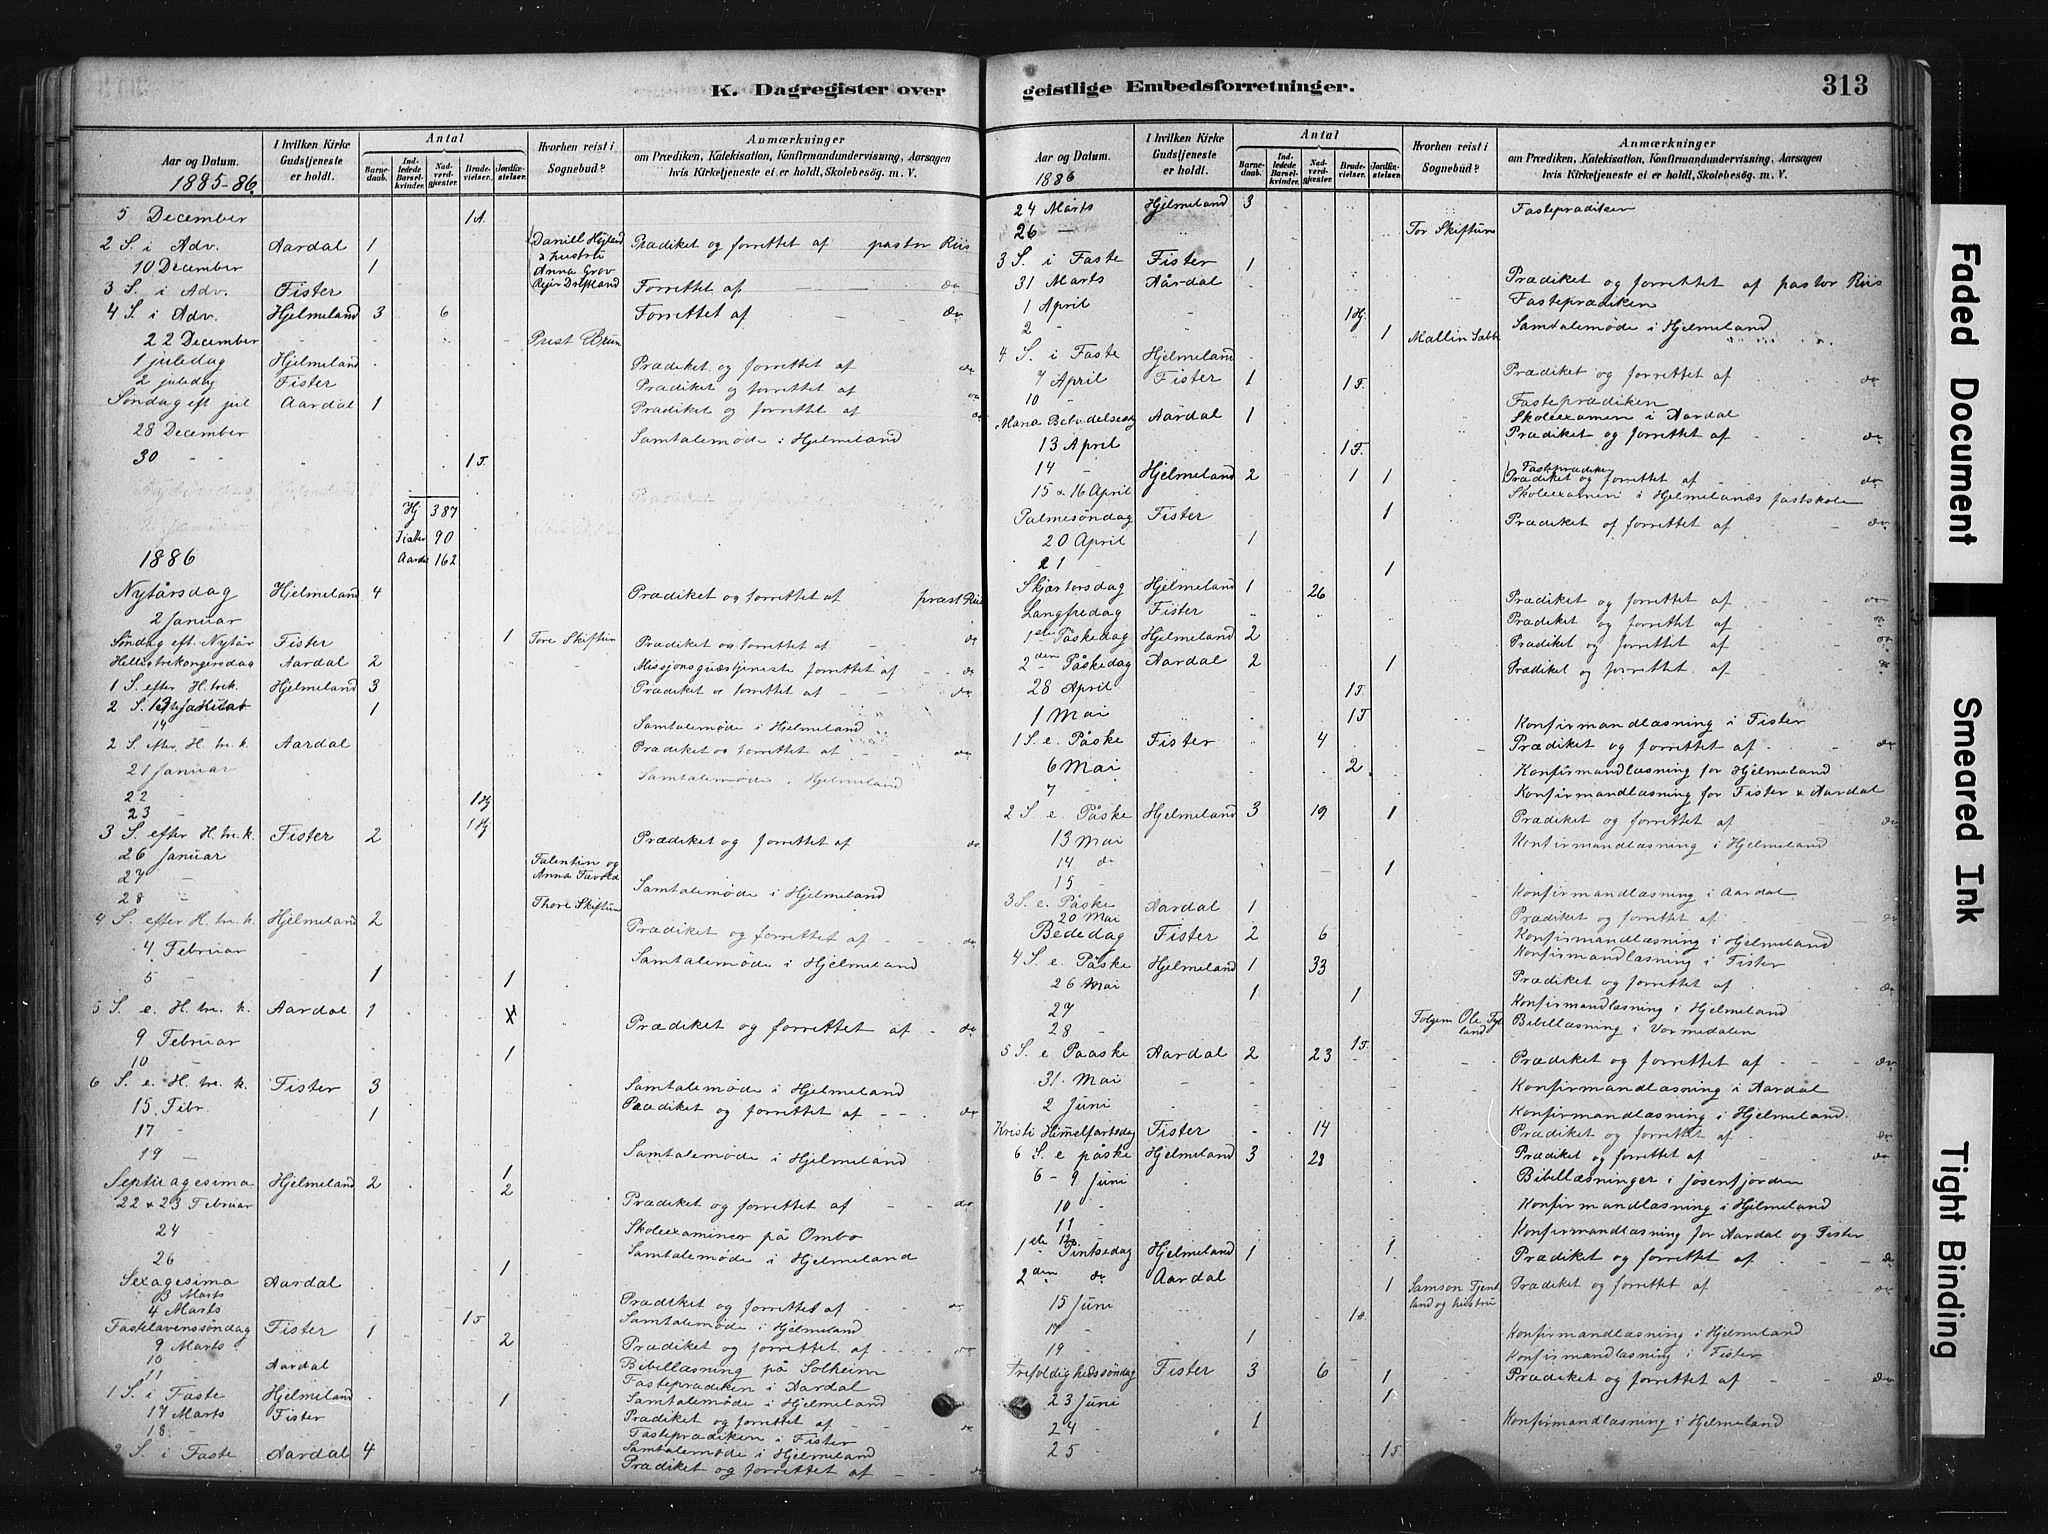 K. Dagregister over
Aar og Datum.
1885-86.
I hvilken Kirke Gudstjeneste er holdt.
Antal
Barnedaab.
Indledede Barselkvinder.
Nadverdgjester.
Brudevielser.
Jordfæstelser.
Hvorhen reist i Sognebud?
Anmærkninger
om Prædiken, Katekisation, Konfirmandundervisning, Aarsagen
hvis Kirketjeneste ei er holdt, Skolebesøg. m. V.
5 December 1 A.
2 S. i Adv. Aardal 1 Daniel Prædiket og forrettet af pastor Riis
& hustru
10 December 1 Anna Grov
3 S. i Adv. Fister Forrettet af do
4 S. i Adv. Hjelmeland 3 6 Forrettet af do
22 December Prest Brun
1 juledag Hjelmeland Prædiket og forrettet af do
2 juledag Fister Prædiket og forrettet af do
Søndag eft jul Aardal 1 Prædiket og forrettet af do
28 December Samtalemøde i Hjelmeland
30 - 1 F.
Hj 387
Fister 90
1886 Aardal 162
Nytårsdag Hjelmeland 4 Prædiket og forrettet af præst Riis
2 Januar
Søndag eft. Nytår Fister 1 Tore Skiftun Prædiket og forrettet af do
Helligtrekongersdag Aardal 2 Missjonsgudstjeneste forrettet af do
1 S. efter H. trek. Hjelmeland 3 Prædiket og forrettet af do
2 S. 13 1
14 - Samtalemøde i Hjelmeland
2 S. efter H. tre. k. Aardal Prædiket og forrettet af do
21 Januar Samtalemøde i Hjelmeland
22 - 1 Hj
23 - 1 Hj
3 S. efter H. tre. k. Fister 2 Prædiket og forrettet af do
26 Januar Falentin og
27 - Anna Samtalemøde i Hjelmeland
28 - Thore Skiftun
4 S. efter H. tre. k. Hjelmeland 2 Prædiket og forrettet af do
4 Februar Samtalemøde i Hjelmeland
5 - 1 1
5 S. e. H. tre. k. Aardal 1 X Prædiket og forrettet af do
9 Februar
10 - 1
6 S. e. H. tre. k. Fister 3 Samtalemøde i Hjelmeland
15. Febr. 1 Prædiket og forrettet af do
17 -
19 - Samtalemøde i Hjelmeland
Septuagesima Hjelmeland 2 1
22 & 23 Februar 2 Prædiket og forrettet af do
24 Skoleexamener på Ombo
26 Samtalemøde i Hjelmeland
Sexagesima Aardal 1
3 Marts Prædiket og forrettet af do
4 Marts 1 F Samtalemøde i Hjelmeland
Fastelavenssøndag Fister 1 2 Prædiket og forrettet af do
9 Marts Bibellæsning på Solheim
10 - Aardal Fasteprædiken i Aardal
11 -
1 S. i Faste Hjelmeland 1 Samtalemøde i Hjelmeland
17 Marts Fister Prædiket og forrettet af do
18 - Fasteprædiken i Fister
2 S. i Faste Aardal 4 Samtalemøde i Hjelmeland
Prædiket og forrettet af do
geistlige Embedsforretninger.
313
Aar og Datum.
1886
I hvilken Kirke Gudstjeneste er holdt.
Antal
Barnedaab.
Indledede Barselkvinder.
Nadverdgjester.
Brudevielser.
Jordfæstelser.
Hvorhen reist i Sognebud?
Anmærkninger
om Prædiken, Katekisation, Konfirmandundervisning, Aarsagen
hvis Kirketjeneste ei er holdt, Skolebesøg. m. V.
24 Marts Hjelmeland 3 Fasteprædiken
26 - Tor Skiftun
3 S. i Faste Fister 1 Prædiket og forrettet af pastor Riis
31 Marts Aardal Fasteprædiken
1 April 1 Hj. Samtalemøde i Hjelmeland
2 - 1 Mallin
4 S. i Faste Hjelmeland Prædiket og forrettet af do
7 April Fister 1 1 F. Fasteprædiken
10 - Skoleexamen i Aardal
Maria Aardal 1 Prædiket og forrettet af do
13 April 1 F. Fasteprædiken
14 - Hjelmeland 2 1 1 Prædiket og forrettet af do
15 & 16 April Skoleexamen i Hjelmelands fastskole
Palmesøndag Fister 1 Prædiket og forrettet af do
20 April 1
21 - 1
Skjærtorsdag Hjelmeland 1 26 Prædiket og forrettet af do
Langfredag Fister Prædiket og forrettet af do
1ste Påskedag Hjelmeland 2 Prædiket og forrettet af do
2den Påskedag Aardal 2 1 Prædiket og forrettet af do
28 April 1 F
1 Mai 1 F Konfirmandlæsning i Fister
1 S. e. Påske Fister 4 Prædiket og forrettet af do
6 Mai 2 Konfirmandlæsning for Hjelmeland
7 - Konfirmandlæsning for Fister & Aardal
2 S. e. Påske Hjelmeland 3 19 1 Prædiket og forrettet af do
13 Mai Konfirmandlæsning i Hjelmeland
14 do 1
15 - Konfirmandlæsning i Aardal
3 S. e. Påske Aardal 1 Prædiket og forrettet af do
20 Mai Konfirmandlæsning i Hjelmeland
Bededag Fister 2 6 Konfirmandlæsning i Fister
4 S. e. Påske Hjelmeland 1 33 Prædiket og forrettet af do
26 Mai 1 1
27 - Konfirmandlæsning i Hjelmeland
28 - Ole Bibellæsning i Vormedalen
5 S. e Paaske Aardal 2 23 1 F. Prædiket og forrettet af do
31. Mai Konfirmandlæsning i Aardal
2 Juni Konfirmandlæsning i Hjelmeland
Kristi Himmelfartsdag Fister 14 Prædiket og forrettet af do
6 S. e påske Hjelmeland 3 28 Prædiket og forrettet af do
6 - 9 Juni Bibellæsninger i Jøsenfjorden
10 - Konfirmandlæsning i Hjelmeland
11 - Konfirmandlæsning for Aardal og Fister
12
1ste Pintsedag Hjelmeland 1 1 Prædiket og forrettet af do
2den do Aardal 1 Samson Prædiket og forrettet af do
15 Juni land og hustru
17 - 1 Konfirmandlæsning i Hjelmeland
19 - Konfirmandlæsning i Fister
Trefoldighedssøndag Fister 3 6 1 Prædiket og forrettet af do
23 Juni 1
24 - 1 Konfirmandlæsning i Hjelmeland
25 1 F
Faded Document
Smeared Ink
Tight Binding